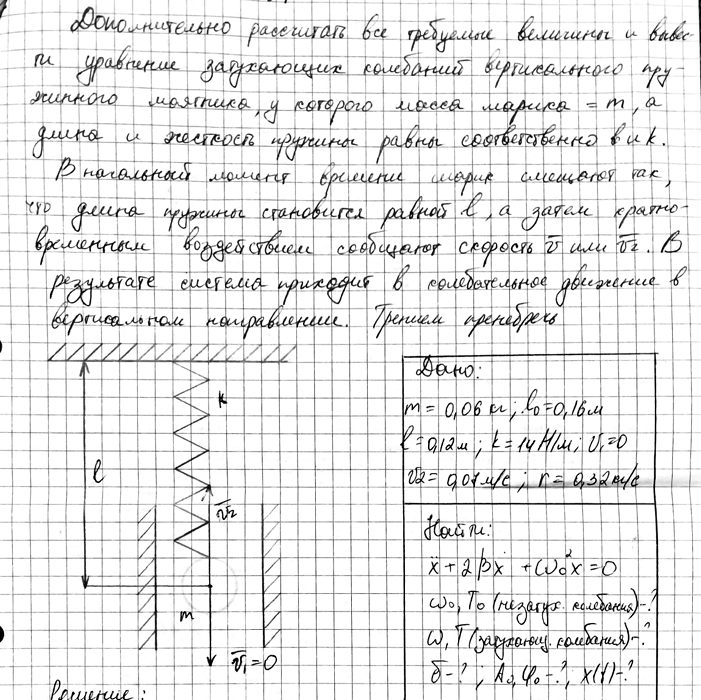 Дополнительно рассчитать все требуемые величины и вывес-
ти уравнение затухающих колебаний вертикального пру-
жинного маятника, у которого масса шарика = m, а
длина и жесткость пружины равны соответственно в и k.
В начальный момент времени шарик смещают так,
что длина пружины становится равной l, а затем кратко-
временным воздействием сообщают скорость v̅ или v̅₂. В
результате система приходит в колебательное движение в
вертикальном направлении. Трением пренебречь
Дано:
m = 0,06 кг; l₀=0,16м
l=0,12м; k=14 Н/м; v₁=0
v2= 0,01 м/с; r = 0,32 кг/с
Найти:
ẍ + 2βẋ + ω₀²x = 0
ω₀, T₀ (незатух. колебания)-?
ω, T (затухающ. колебания)-?
δ-?; A₀, φ₀-?; x(t)-?
k
l
v̅₂
m
v̅₁=0
Решение: